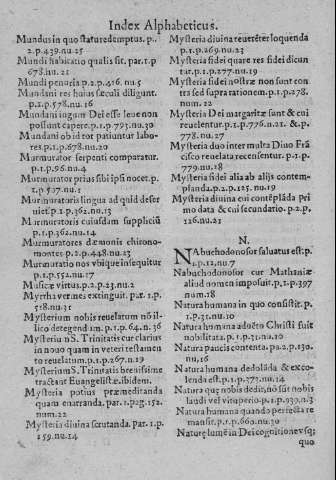 Index Alphabeticus.
Mundus in quo statu redemptus. p.
2. p. 439. nu. 25
Mundi habitatio qualis sit. par. 1. p
678. nu. 21
Mundi penuria p. 2. p. 416. nu. 5
Mundani res huius sæculi diligunt.
p. 1. p. 578. nu. 16
Mundani iugum Dei esse leue non
possunt capere. p. 1. p. 793. nu. 30
Mundani ob id tot patiuntur labo-
res. p. 1. p. 678. nu. 20
Murmurator serpenti comparatur.
p. 1. p. 96. nu. 4
Murmurator prius sibi ipsi nocet. p.
1. p. 527. nu. 1
Murmuratoris lingua ad quid deser
uiet. p. 1. p. 362. nu. 13
Murmuratoris cuiusdam suppliciũ
p. 1. p. 362. nu. 14
Murmuratores dæmonis chirono-
montes p. 2. p. 448. nu. 23
Murmuratio nos vbique insequitur
p. 1. p. 552. nu. 17
Musicæ virtus. p. 2. p. 23. nu. 2
Myrrha vermes extinguit. par. 1. p.
518. nu. 31
Mysterium nobis reuelatum nõ il-
lico detegendum. p. 1. p. 64. n. 36
Mysteriũ S. Trinitatis cur clarius
in nouo quam in veteri testamen
to reuelatum. p. 1. p. 267. n. 19
Mysterium S. Trinitatis breuissime
tractant Euangelistæ. ibidem.
Mysteria potius præmeditanda
quam enarranda. par. 1. pag. 152.
num. 22
Mysteria diuina scrutanda. par. 1. p.
159. nu. 14
Mysteria diuina reuerẽter loquenda
p. 1. p. 269. nu. 23
Mysteria fidei quare res fidei dicun
tur. p. 1. p. 277. nu. 19
Mysteria fidei nostræ non sunt con
tra sed supra rationem. p. 1. p. 278.
num. 22
Mysteria Dei margaritæ sunt & cui
reuelentur. p. 1. p. 776. n. 21. & p.
778. nu. 27
Mysteria duo inter multa Diuo Frã
cisco reuelata recensentur. p. 1. p.
779. nu. 18
Mysteria fidei alia ab alijs contem-
planda. p. 2. p. 125. nu. 19
Mysteria diuina cui contẽplãda pri
mo data & cui secundario. p. 2. p.
126. nu. 21
N.
NAbuchodonosor saluatus est: p.
1. p. 12. nu. 7
Nabuchodonosor cur Mathaniæ
aliud nomen imposuit. p. 1. p. 397
num. 18
Natura humana in quo consistit. p.
1. p. 31. nu. 10
Natura humana aduẽto Christi fuit
nobilitata. p. 1. p. 31. nu. 10
Natura paucis contenta. pa. 2. p. 130.
nu. 16
Natura humana dedolãda & exco-
lenda est. p. 1. p. 373. nu. 14
Natura quę nobis dedit, nõ sũt nobis
laudi vel vituperio. p. 1. p. 939. n. 3
Natura humana quando perfecta re
mansit. p. 1. p. 660. nu. 30
Naturę lumẽ in Dei cognitionẽ vsq;
quo